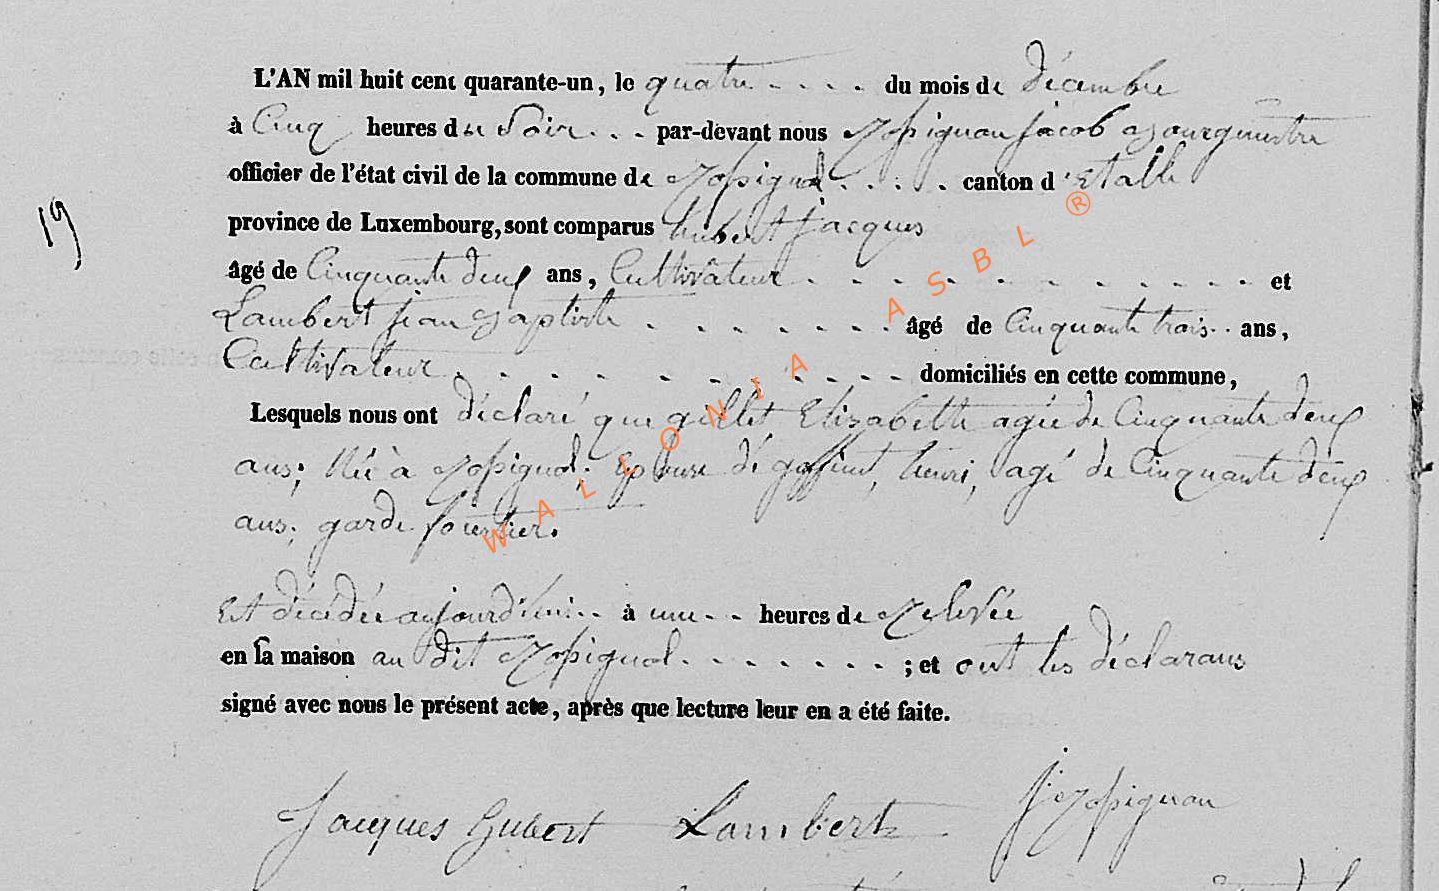 L'AN mil huit cent quarante-un, le quatre du mois de décembre
à Cinq heures du Soir par-devant nous jacob Bourguestre
officier de l'état civil de la commune de canton d'Etalle
province de Luxembourg, sont comparus hubert jacques
âgé de Cinquante deux ans, Cultivateur et
Lambert jean Baptiste âgé de Cinquante trois ans,
Cultivateur domiciliés en cette commune,
19
Lesquels nous ont déclaré que gillet Elizabette agée de Cinquante deux
ans; Née à Epouse de goffinet, henri, agé de Cinquante deux
ans, garde forestier.
Est décédée aujourd'hui à une heures de
en sa maison au dit ; et ont les déclarans
signé avec nous le présent acte, après que lecture leur en a été faite.
Jacques Hubert Lambert
WALLONIA ASBL ®